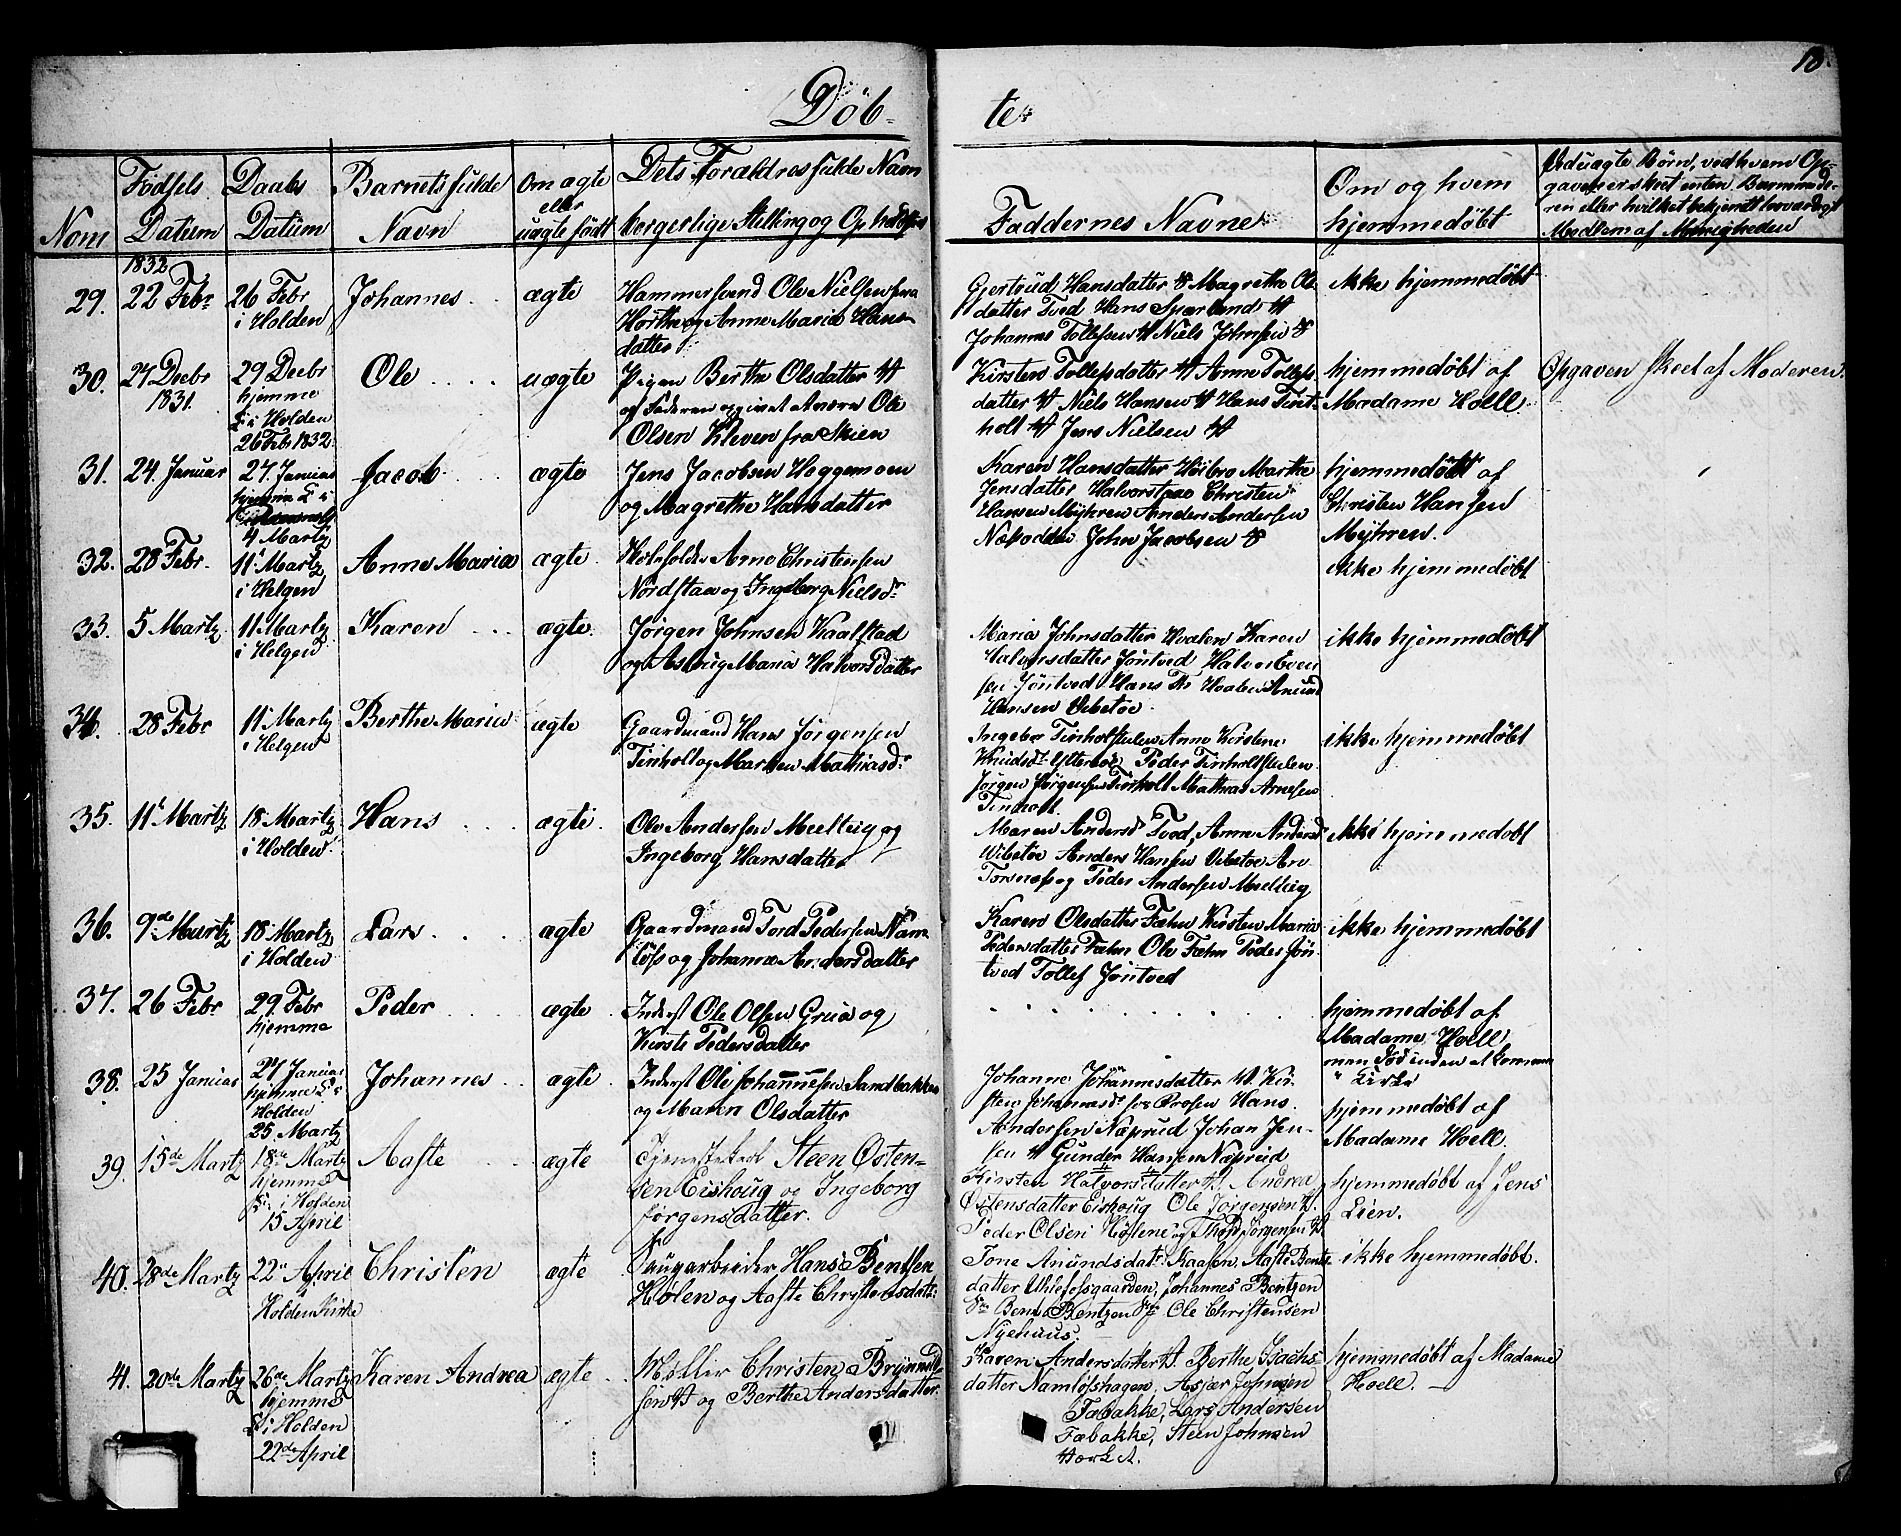 10.
Döb-
te.
Nom
Födsels
Datum
Daabs
Datum
Barnets fulde
Navn
Om ægte
eller
uægte födt
Dets Forældres fulde Navn
borgerlige Stilling og Opholds
Faddernes Navne
Om og hvem
hjemmedöbt
Ved uægte Börn, ved hvem Op-
gaven er skeet enten Barnemode-
ren eller hvilket bekjendt
Medlem af Menigheden
1832
29. 22 Febr
26 Febr
i Holden
Johannes
ægte
Hammersvend Ole Nielsen fra
og Anne Maria Hans-
datter
Gjertrud Hansdatter Magrethe Ols
datter Tved Hans
Johannes Tollefsen Niels Johnsen
ikke hjemmedöbt
30. 27 Decbr
1831.
29 Decbr
hjemme
i Holden
26 Febr 1832
Ole
uægte
Pigen Berthe Olsdatter
af Faderen opgivet Ole
Olsen Kleven fra Skien
Kirsten Tollefsdatter Anne Tollefs
datter Niels Hansen Hans Tint-
holt Jens Nielsen
hjemmedöbt af
Madame Hoell.
Opgaven skeet af Moderen.
31. 24 Januar
27 Januar
hjemme
4 Martz
Jacob
ægte
Jens Jacobsen Heggemoen
og Magrethe Hansdatter
Karen Hansdatter Marthe
Jensdatter Christen
Hansen Myhren Anders Andersen
John Jacobsen
hjemmedöbt af
Christen Hansen
Myhren.
32. 28 Febr.
11 Martz
i Helgen
Anne Maria
ægte
Arne Christensen
Nordstaa og Ingeborg Nielsdr
ikke hjemmedöbt
33. 5 Martz
11 Martz
i Helgen
Karen
ægte.
Jörgen Johnsen Kaalstad
og Aslaug Maria Halvorsdatter
Maria Johnsdatter Hvalen Karen
Halvorsdatter Jöntved Halvor Even
sen Jöntved Hans Hvalen Anund
Hansen Vibetoe.
ikke hjemmedöbt
34. 28 Febr
11 Martz
i Helgen
Berthe Maria
ægte
Gaardmand Hans Jörgensen
Tinholt og Maren Mathiasdr
Ingebor Tinholtstulen Anne Kirstene
Knudsdr Ytterböe Peder Tinholtstulen
Jörgen Jörgensen Tinholt Mathias Arnesen
Tinholt.
ikke hjemmedöbt
35. 11 Martz
18 Martz
i Holden
Hans
ægte.
Ole Andersen Melteig og
Ingeborg Hansdatter
Maren Andersd Tved, Anne Andersd
Vibetoe Anders Hansen Vibetoe
og Peder Andersen Melteig
ikke hjemmedöbt
36. 9de Martz
18 Martz
i Holden
Lars
ægte
Gaardmand Tord Pedersen Nam-
löss og Johanne Andersdatter
Karen Olsdatter Fæhn Kirsten Maria
Pedersdatter Fæhn Ole Fæhn Peder Jön-
tved Tollef Jöntved
ikke hjemmedöbt
37. 26 Febr
29 Febr
hjemme
Peder
ægte
Inderst Ole Olsen Grua og
Kirste Pedersdatter
hjemmedöbt af
Madame Hoell,
men död inden
Kirke
38. 25 Januar
27 Januar
hjemme
Holden
25 Martz
Johannes
ægte
Inderst Ole Johannesen Sandbakken
og Maren Olsdatter
Johanne Johannesdatter Kir-
sten Johannesdr Hans
Andersen Næsrud Johan Jen-
sen Gunder Hansen Næsrud
hjemmedöbt af
Madame Hoell.
39. 15de Martz
18de Martz
hjemme
i Holden
15 April
Aaste
ægte
Tjenestekarl Steen Östen-
sen Eishoug og Ingeborg
Jörgensdatter.
Kirsten Halvorsdatter, Andrea
Östensdatter Eishoug Ole Jörgensen
Peder Olsen og Jörgensen
hjemmedöbt af Jens
Lien.
40. 28de Martz
22 April
Holden Kirke
Christen
ægte
Saugarbeider Hans Bentsen
Hölen og Aaste Christensdatt.
Tone Anundsdatr Kaasen, Aaste Bents
datter Ulefosgaarden, Johannes Bentzen
Bentzen Ole Christensen
Nyehuus.
ikke hjemmedöbt.
41. 20de Martz
26de Martz
hjemme
i Holden
22de April
Karen Andrea
ægte
Möller Christen Brynnild-
sen og Berthe Andersdatter.
Karen Andersdatter, Berthe Isachs
datter Namlöshagen, Asjer Johnsen
Fæbakke, Lars Andersen
Fæbakke, Steen Johnsen
hjemmedöbt af Madame
Hoell.